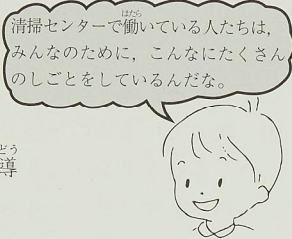 清掃センターで働いている人たちは，
みんなのために，こんなにたくさん
のしごとをしているんだな。
導